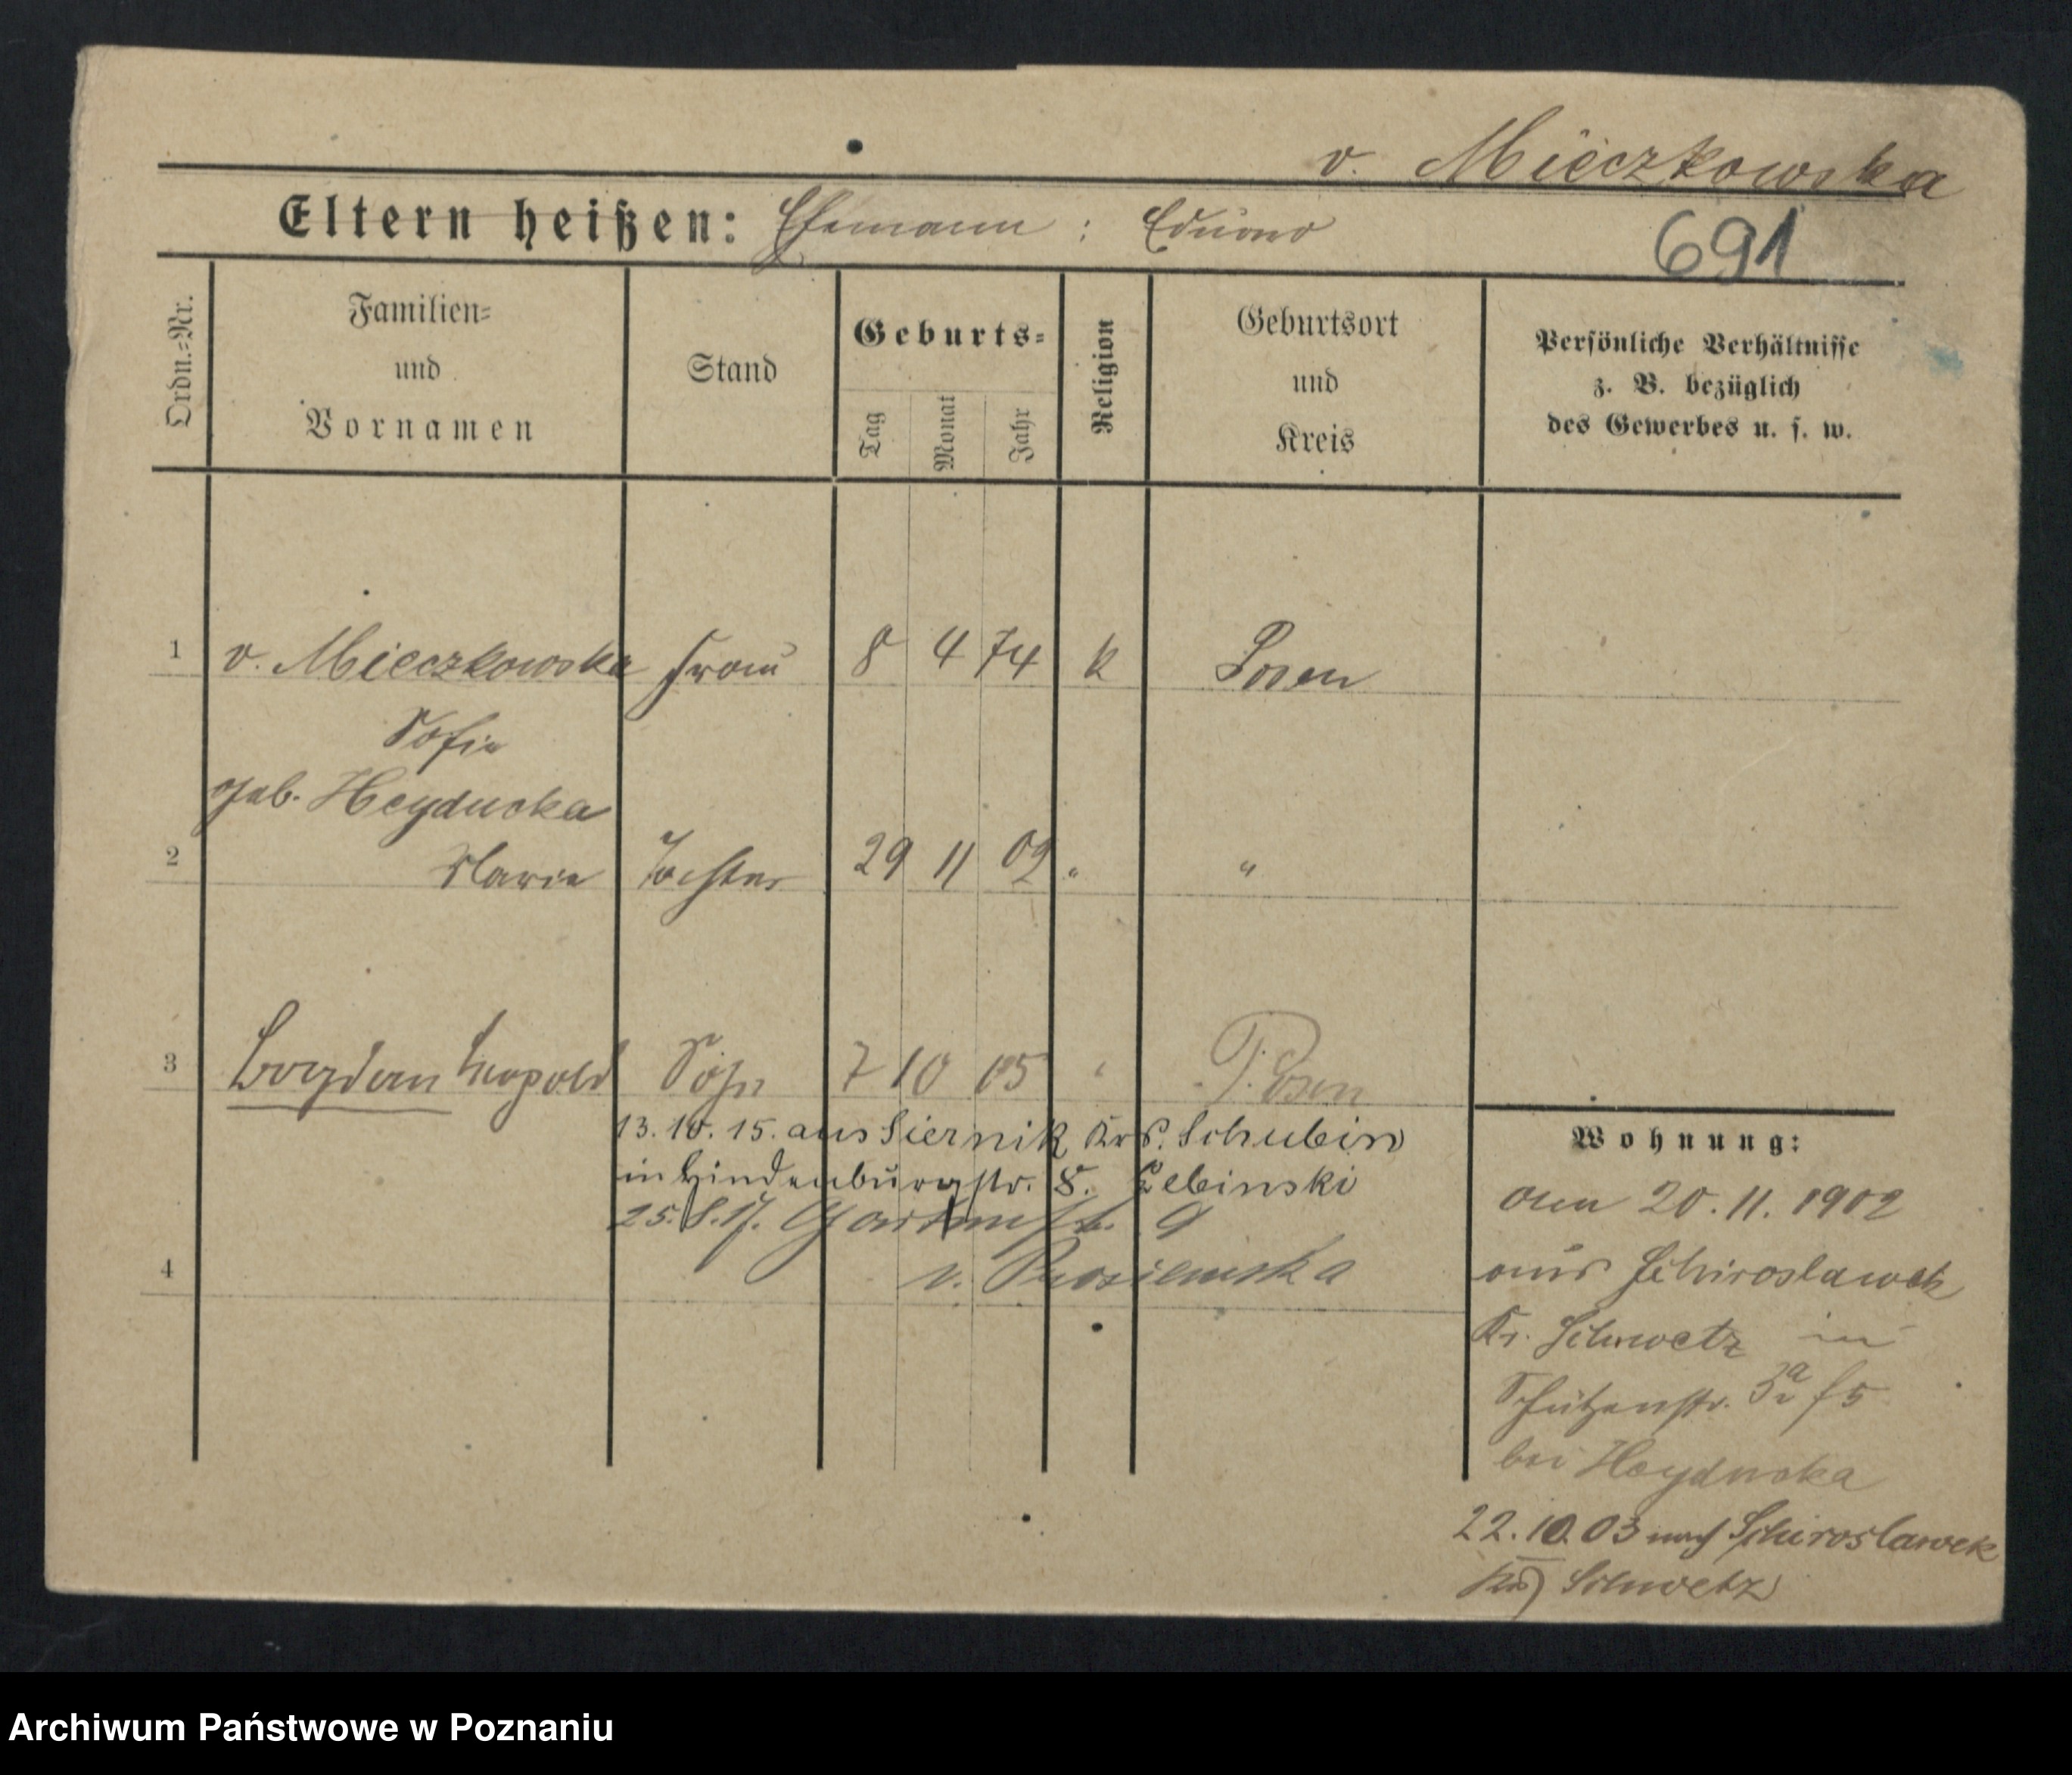 v. Mieczkowska
Eltern heißen: Ehemann : Eduard
691
Ordn.=Nr.
Familien=
und
Vornamen
Stand
Geburts=
Tag
Monat
Jahr
Religion
Geburtsort
und
Kreis
Persönliche Verhältnisse
z. B. bezüglich
des Gewerbes u. s. w.
1 v. Mieczkowska Frau 8 4 74 k Posen
Sofia
geb. Heyducka
2 Maria Tochter 29 11 02 " "
3 Bogdan Leopold Sohn 7 10 05 " Posen
13. 10. 15. aus Siernik Krs. Schubin
in Hindenburgstr. 8. Lebinski
25. 8. 17. Gartenstr. 9
v.
4
Wohnung:
am 20. 11. 1902
aus Schiroslawek
Kr. Schwetz in
Schützenstr.
bei Heyducka
22. 10. 03 nach Schiroslawek
Krs Schwetz
Archiwum Państwowe w Poznaniu